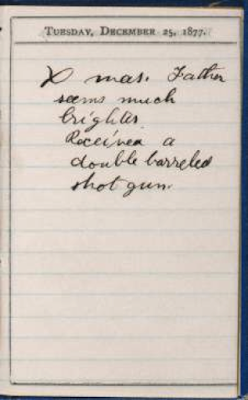 TUESDAY, DECEMBER 25, 1877.
X mas. Father
seems much
brighter.
Received a
double barreled
shot gun.